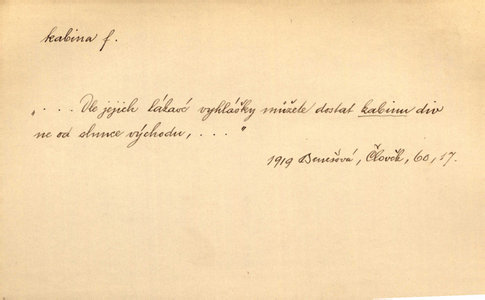 kabina f.
„ . . . Dle jejich lákavé vyhlášky můžete dostat kabinu div
ne od slunce východu, . . . "
1919 Benešová, Člověk, 60, 17.